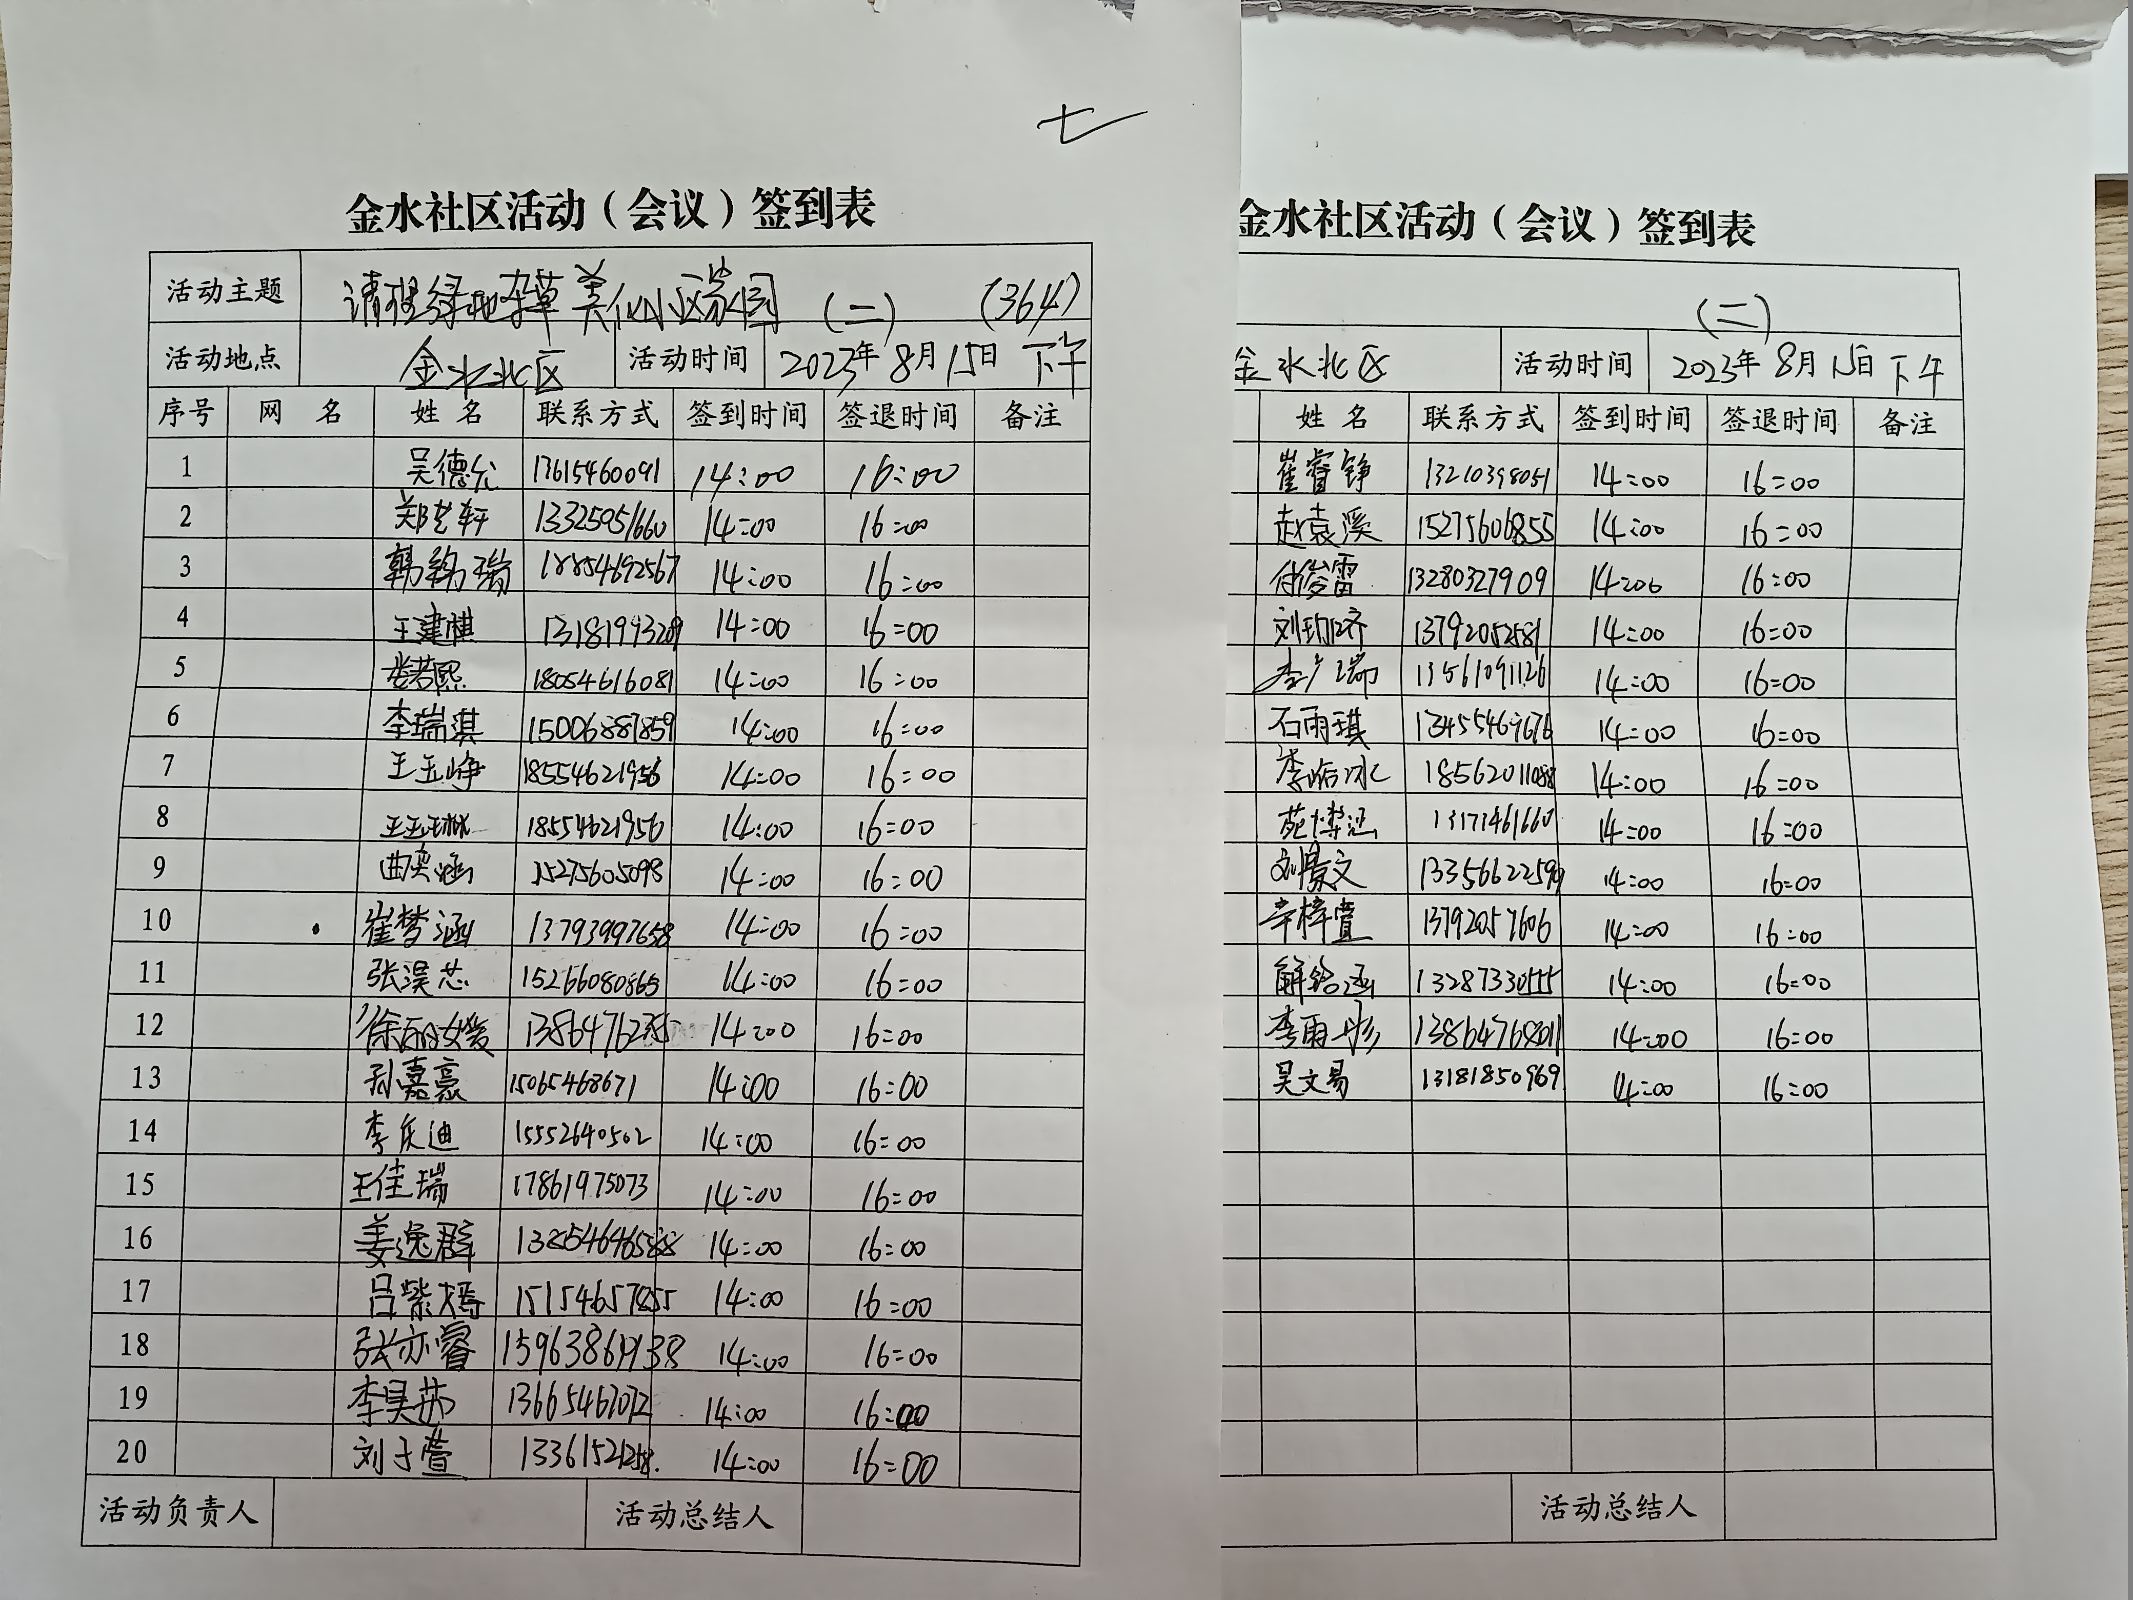 七
金水社区活动（会议）签到表
活动主题 清理绿地杂草 美化小区家园 （二） (364)
活动地点 金水北区 活动时间 2023年8月15日 下午
序号 网 名 姓 名 联系方式 签到时间 签退时间 备注
1 吴德允 17615460091 14:00 16:00
2 13325951660 14:00 16:00
3 18854692567 14:00 16:00
4 王建棋 13181993209 14:00 16:00
5 娄若熙 18054616081 14:00 16:00
6 李瑞淇 15006887859 14:00 16:00
7 王玉峥 18554621956 14:00 16:00
8 王玉琳 18554621956 14:00 16:00
9 曲奕涵 15275605098 14:00 16:00
10 崔梦涵 13793997658 14:00 16:00
11 张淏芯 15266080865 14:00 16:00
12 14:00 16:00
13 孙嘉豪 15065468671 14:00 16:00
14 李庆迪 15552640502 14:00 16:00
15 王佳瑞 17861975073 14:00 16:00
16 姜逸群 13854646588 14:00 16:00
17 吕紫嫣 15154657855 14:00 16:00
18 张亦睿 14:00 16:00
19 李昊茹 14:00 16:00
20 刘子萱 14:00 16:00
活动负责人 活动总结人
金水社区活动（会议）签到表
（二）
金水北区 活动时间 2023年8月15日 下午
姓 名 联系方式 签到时间 签退时间 备注
崔睿铮 13210398051 14:00 16:00
赵袁溪 15275606855 14:00 16:00
付俊雷 13280327909 14:00 16:00
13792052581 14:00 16:00
李广瑞 13561091126 14:00 16:00
石雨琪 13455469676 14:00 16:00
18562011088 14:00 16:00
苑博涵 13171461660 14:00 16:00
刘景文 13356622594 14:00 16:00
辛梓萱 13792057606 14:00 16:00
解铭涵 13287330555 14:00 16:00
李雨彤 13864768011 14:00 16:00
吴文易 13181850969 14:00 16:00
活动总结人